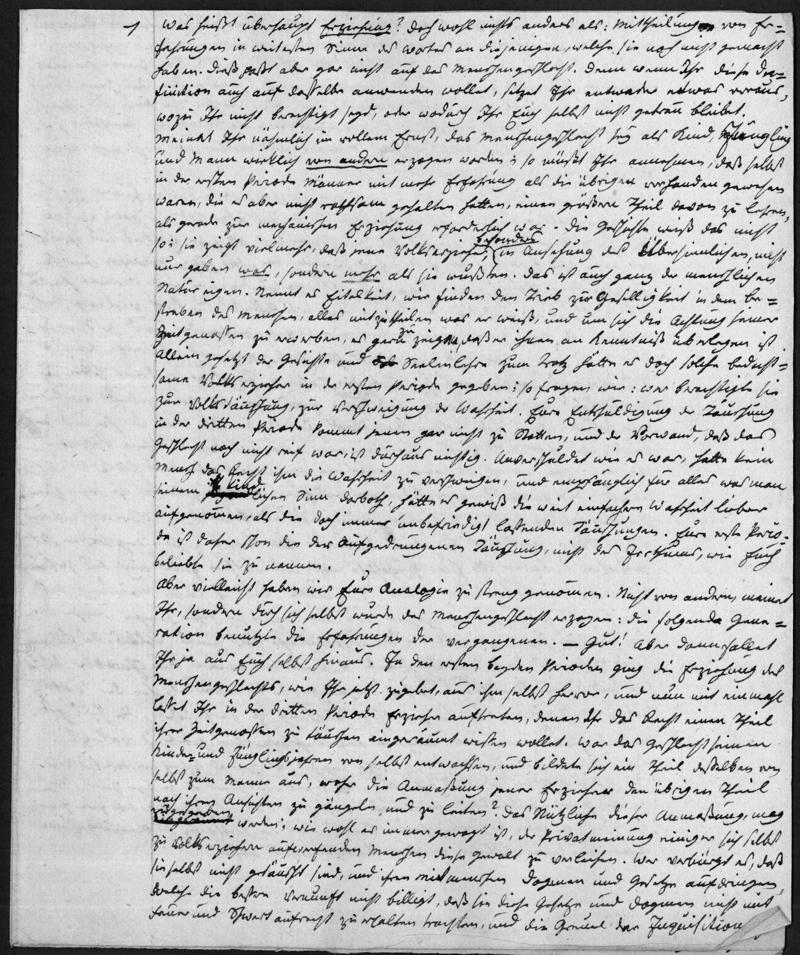 Was heißt überhaupt Erziehung? Doch wohl nichts anders als: Mittheilung von Er=
fahrungen im weitesten Sinne des Wortes an diejenigen, welche sie noch nicht gemacht
haben. Dieß paßt aber gar nicht auf das Menschengeschlecht. Denn wenn Ihr diese De=
finition auch auf dasselbe anwenden wollet, setzet Ihr entweder etwas voraus,
wozu Ihr nicht berechtigt seyd, oder wodurch Ihr Euch selbst nicht getreu bleibet.
Meinet Ihr nähmlich im vollem Ernst, das Menschengeschlecht sey als Kind, Jüngling
und Mann wirklich von andern erzogen worden; so müsset Ihr annehmen, daß selbst
in der ersten Periode Männer mit mehr Erfahrung als die übrigen vorhanden gewesen
waren, die es aber nicht rathsam gehalten hätten, einen größern Theil davon zu lehren,
als gerade zur Erziehung erforderlich war. Die Geschichte weiß das nicht
so: sie zeigt vielmehr, daß jene Volkserzieher, besonders in Ansehung des Übersinnlichen, nicht
nur gaben was, sondern mehr als sie wußten. Das ist auch ganz der menschlichen
Natur eigen. Nennt es Eitelkeit, wir finden den Trieb zur Geselligkeit in dem Be=
streben des Menschen, alles mitzutheilen was er weiß, und um sich die Achtung seiner
Zeitgenossen zu erwerben, es gern zu zeigen, daß er ihnen an Kenntniß überlegen ist.
Allein gesetzt der Geschichte und Seelenlehre zum Trotz hätte es doch solche bedacht=
same Volkserzieher in der ersten Periode gegeben; so fragen wir: wer berechtigte sie
zur Volkstäuschung, zur Verschweigung der Wahrheit. Eure Entschuldigung der Täuschung
in der dritten Periode kommt jenen gar nicht zu Statten, und der Vorwand, daß das
Geschlecht noch nicht reif war, ist durchaus nichtig. Unverschuldet wie es war, hatte kein
Mensch das Recht ihm die Wahrheit zu verschweigen, und empfänglich für alles was man
seinem kindlichen Sinn darboth, hätte es gewiß die weit einfachere Wahrheit lieber
aufgenommen, als die doch immer unbefriedigt lassenden Täuschungen. Eure erste Perio=
de ist daher schon die der aufgedrungenen Täuschung, nicht des Irrthums, wie Euch
beliebte sie zu nennen.
Aber vielleicht haben wir Eure Analogie zu streng genommen. Nicht von andern, meinet
Ihr, sondern durch sich selbst wurde das Menschengeschlecht erzogen: die folgende Gene=
ration benützte die Erfahrungen der vergangenen. — Gut! Aber dann fallet
Ihr ja aus Euch selbst heraus. In den ersten beyden Perioden ging die Erziehung des
Menschengeschlechts, wie Ihr jetzt zugebet, aus ihm selbst hervor, und nun mit einmahl
lasset Ihr in der dritten Periode Erzieher auftreten, denen Ihr das Recht einen Theil
ihrer Zeitgenossen zu täuschen eingeräumt wissen wollet. War das Geschlecht seinen
Kinder- und Jünglingsjahren von selbst entwachsen, und bildete sich ein Theil desselben von
selbst zum Manne aus, woher die Anmaßung jener Erzieher den übrigen Theil
nach ihren Ansichten zu gängeln und zu leiten? Das Nützliche dieser Anmaßung, mag
zugegeben werden; wie wohl es immer gewagt ist, der Privatmeinung einiger sich selbst
zu Volkserziehern aufwerfenden Menschen diese Gewalt zu verleihen. Wer verbürgt es, daß
sie selbst nicht getäuscht sind, und ihren Mitmenschen Dogmen und Gesetze aufdringen,
welche die bessere Vernunft nicht billigt, daß sie diese Gesetze und Dogmen nicht mit
Feuer und Schwert aufrecht zu erhalten trachten, und die Greuel der Inquisition